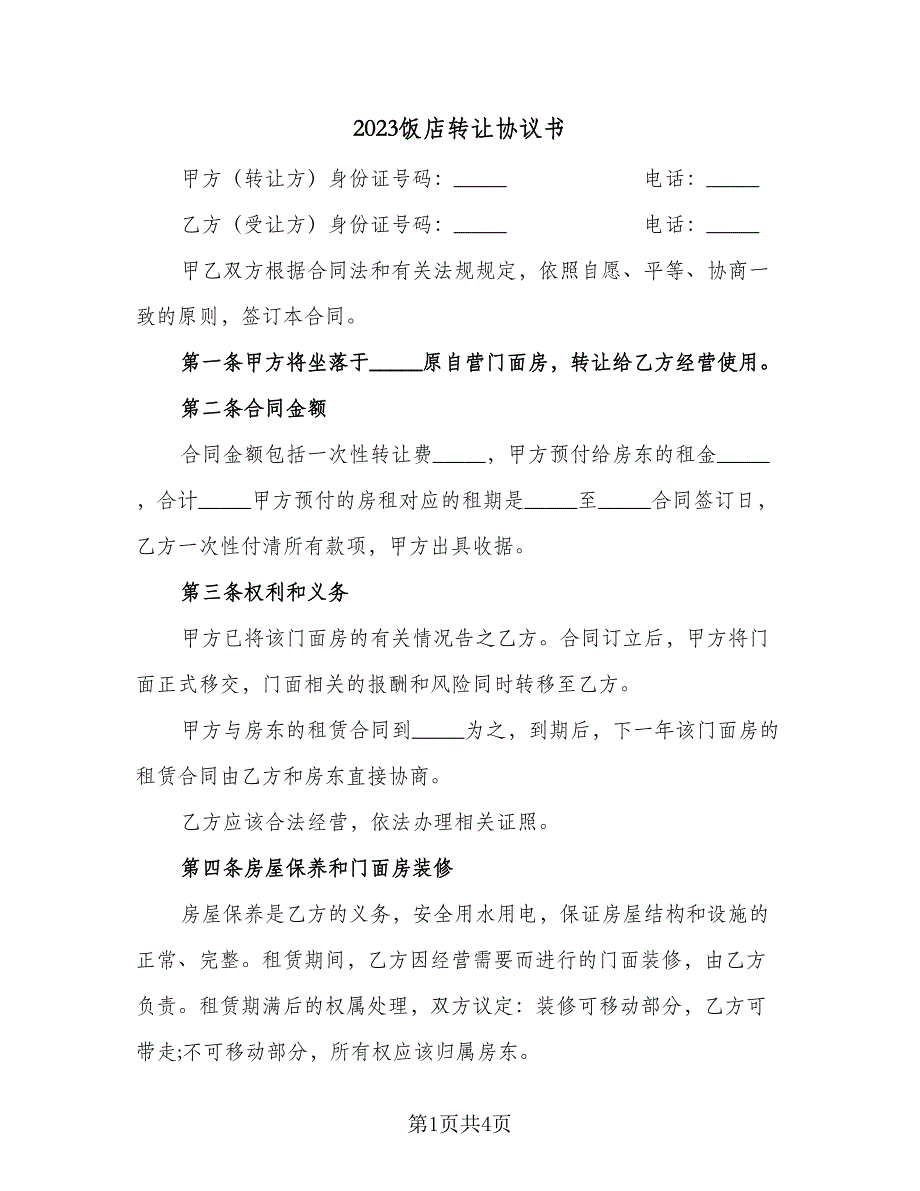 2023饭店转让协议书
甲方（转让方）身份证号码：_____ 电话：_____
乙方（受让方）身份证号码：_____ 电话：_____
甲乙双方根据合同法和有关法规规定，依照自愿、平等、协商一
致的原则，签订本合同。
第一条甲方将坐落于_____原自营门面房，转让给乙方经营使用。
第二条合同金额
合同金额包括一次性转让费_____，甲方预付给房东的租金_____
，合计_____甲方预付的房租对应的租期是_____至_____合同签订日，
乙方一次性付清所有款项，甲方出具收据。
第三条权利和义务
甲方已将该门面房的有关情况告之乙方。合同订立后，甲方将门
面正式移交，门面相关的报酬和风险同时转移至乙方。
甲方与房东的租赁合同到_____为之，到期后，下一年该门面房的
租赁合同由乙方和房东直接协商。
乙方应该合法经营，依法办理相关证照。
第四条房屋保养和门面房装修
房屋保养是乙方的义务，安全用水用电，保证房屋结构和设施的
正常、完整。租赁期间，乙方因经营需要而进行的门面装修，由乙方
负责。租赁期满后的权属处理，双方议定：装修可移动部分，乙方可
带走;不可移动部分，所有权应该归属房东。
第1页共4页